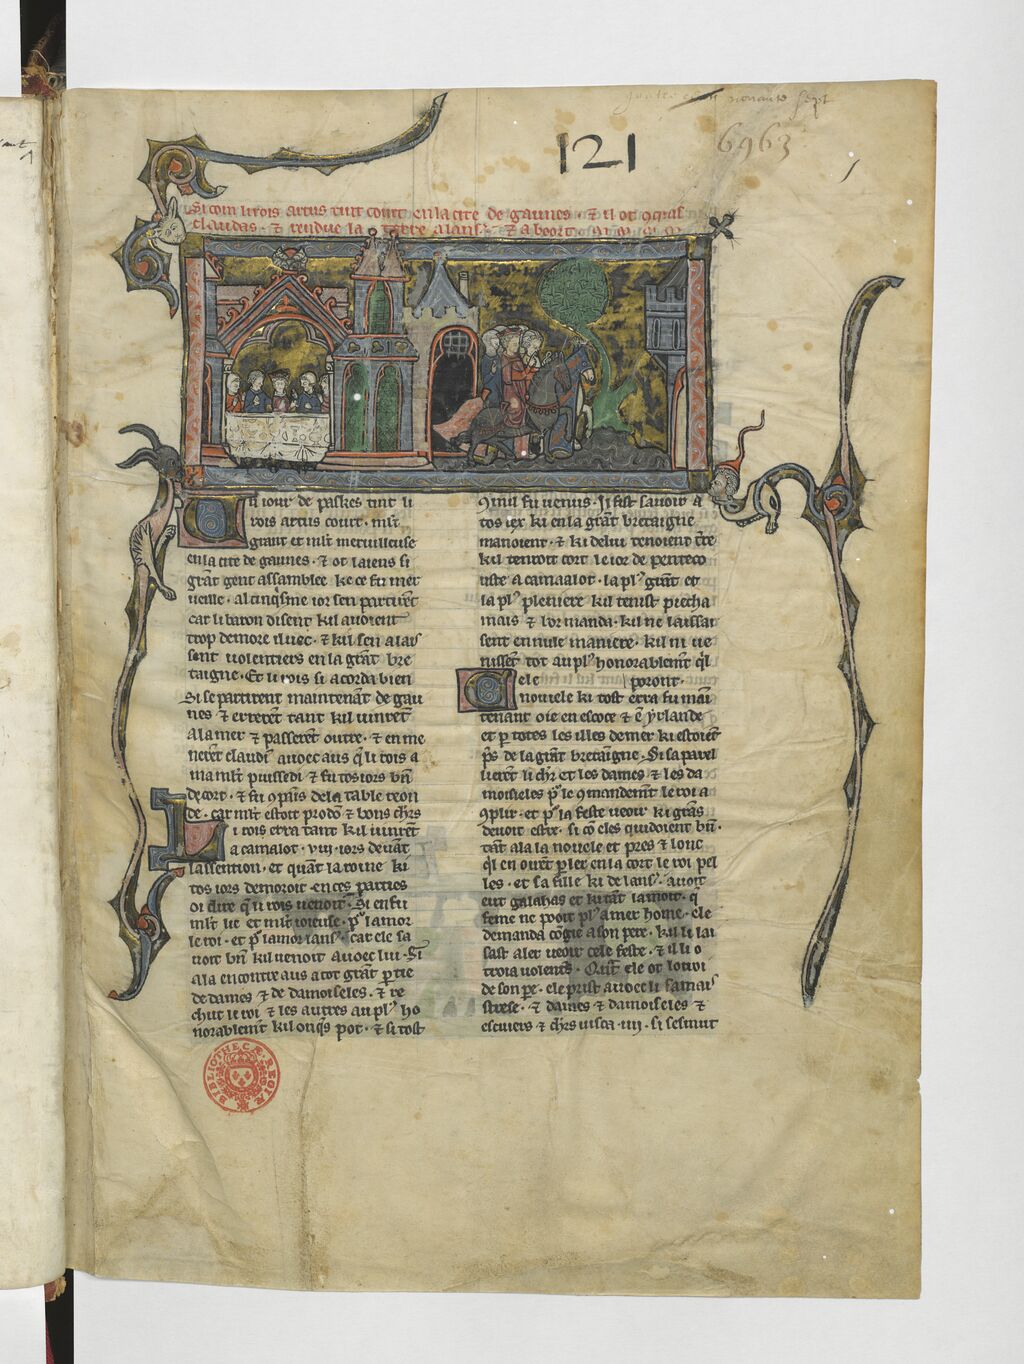 121
6963
Si com li rois artus tint court en la cite de gaunes . ⁊ il ot 9q̃s
claudas . ⁊ rendue la terre a lans̃. ⁊ a boort .
Au iour de paskes tint li
rois artus court . ml̃t
grant et ml̃t merueilleuse
en la cite de gaunes . ⁊ ot laiens si
grãt gent assamblee ke ce fu mer
ueille . al cinq̃sme ior sen partirẽt
car li baron disent kil auoient
trop demore iluec . ⁊ kil sen alais
sent uolentiers en la grãt bre
taigne . Et li rois si acorda bien
Si se partirent maintenãt de gau
nes ⁊ errerẽt tant kil uinrẽt
a la mer ⁊ passerẽt outre . ⁊ en me
nerẽt claudĩ auoec aus q̃ li rois a
ma ml̃t puissedi ⁊ fu tos iors bñ
de cort . ⁊ fu 9pains de la table reon
de . car ml̃t estoit prodõ ⁊ bons ch̃rs
Li rois erra tant kil uinrẽt
a camalot . viii . iors deuãt
lassention . et quãt la roine ki
tos iors demoroit en ces parties
oi dire q̃ li rois uenoit . Si en fu
ml̃t lie et ml̃t ioieuse . p̃ lamor
le roi . et p̃ lamor lans̃. car ele sa
uoit bñ kil uenoit auoec lui . Si
ala encontre aus a tot grãt p̃tie
de dames ⁊ de damoiseles . ⁊ re
chut le roi ⁊ les autres au pl̃ ho
norablemt̃ kil onq̃s pot . ⁊ si tost
9 il fu uenus . li fist sauoir a
tos iex ki en la grãt bretaigne
manoient . ⁊ ki de lui tenoient t̃re
kil tenroit cort le ior de penteco
uste a camaalot . la pl̃ grãt et
la pl̃ pleniere kil tenist piecha
mais ⁊ lor manda . kil ne laissai
sent en nule maniere . kil ni ue
nissẽt tot au pl̃ honorablemt̃ q̃l
poront .
Cele
nouele ki tost erra fu main
tenant oie en escoce ⁊ ẽ yrlande
et p̱ totes les illes de mer ki estoiẽt
p̃s de la grãt bretaigne . Si sa parel
lierẽt li ch̃r et les dames ⁊ les da
moiseles p̃ le 9mandemt̃ le roi a
9plir . et p̃ la feste ueoir ki grãs
deuoit estre . si cõ eles quidoient bñ .
tãt ala la nouele et pres ⁊ loing
q̃l en oirẽt p̱ler en la cort le roi pel
les . et sa fille ki de lans̃. auoit
eut galahas et ki tãt lamoit . q̃
feme ne pooit pl̃ amer home . ele
demanda cõgie a son pere . kil li lai
sast aler ueoir cele feste . ⁊ il li o
troia uolentẽs . Quãt ele ot lotroi
de son p̱e . ele prist auoec li sa mais
strese . ⁊ dames ⁊ damoiseles ⁊
escuiers ⁊ ch̃rs iusca . iiii . si sesmut
BIBLIOTHECÆ REGIÆ